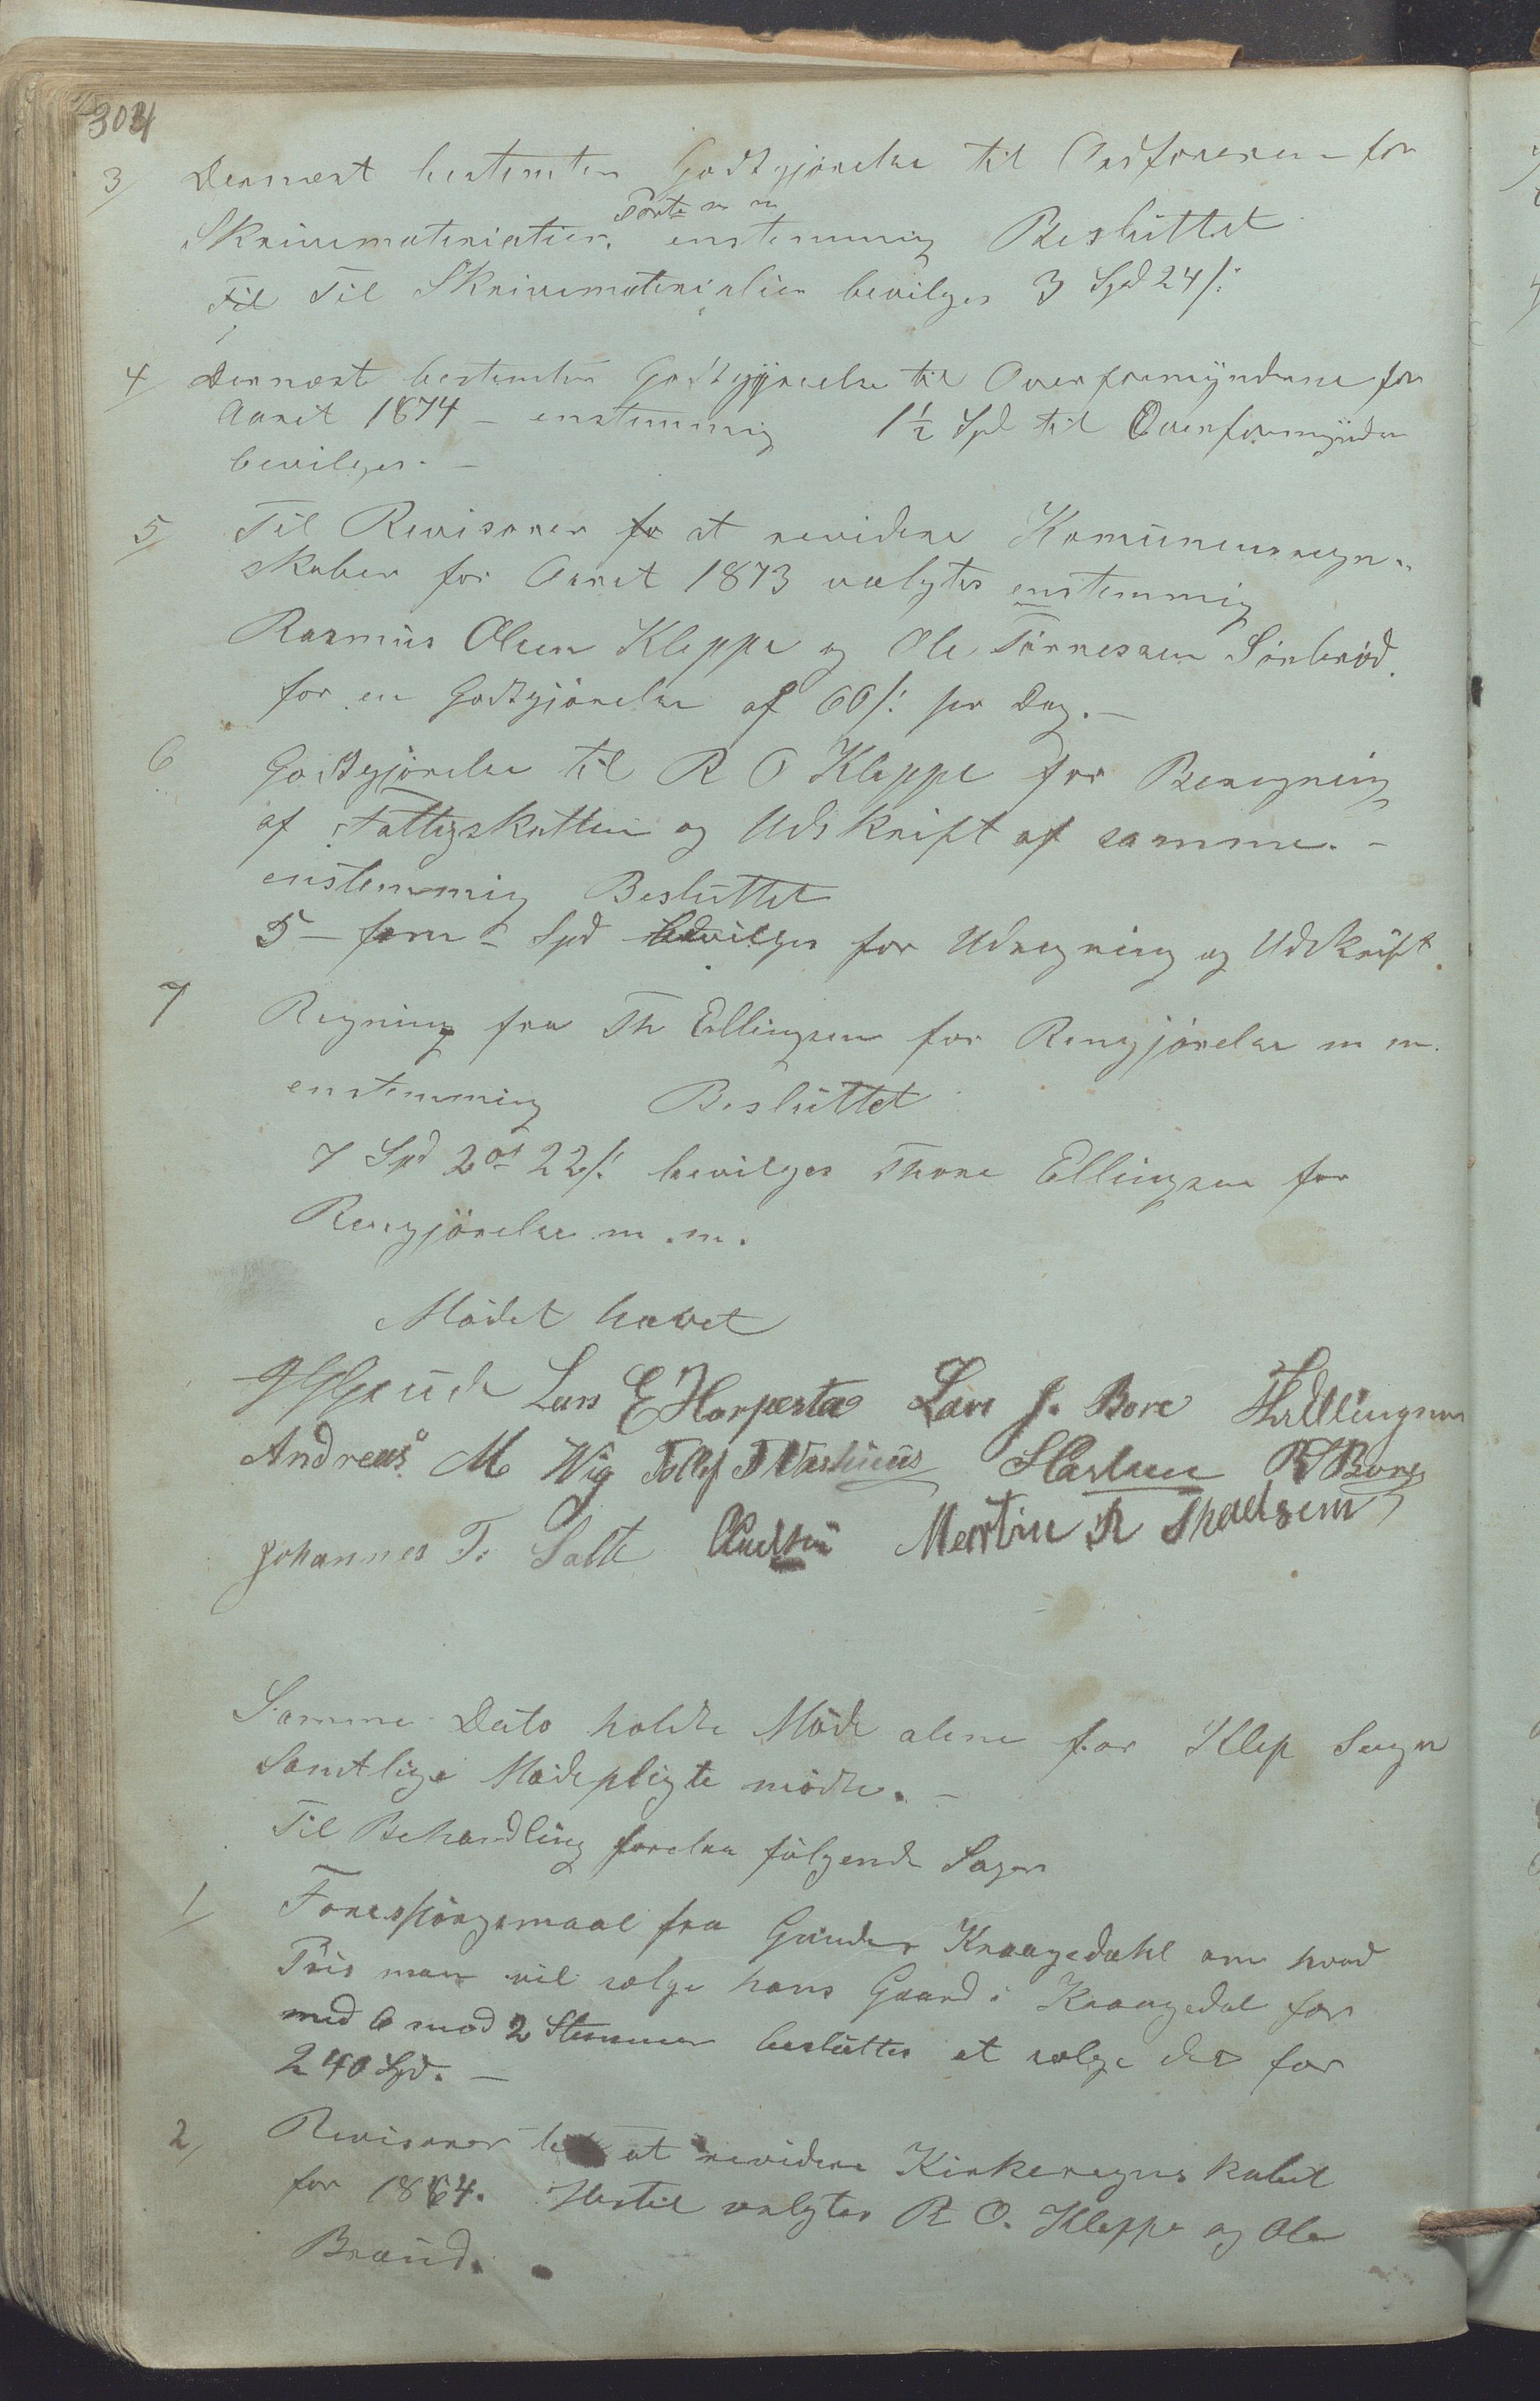 304
3/ Dernæst bestemtes Godtgjörelse til Ordföreren for
Porto m m
Skrivematerialier. enstemmig Besluttet
Til Til Skrivematerialier bevilges 3 Spd 24 /:
4/ Dernæst bestemtes Godtgjörelse til Overformynderne for
Aaret 1874 – enstemmig 1½ Spd til Overformynder
bevilges. –
5/ Til Revisorer fo at revidere Komuneregn-
skaber for Aaret 1873 valgtes enstemmig
Rasmus Olsen Kleppe og Ole Tönnesen Sörbröd.
for en Godtgjörelse af 60 /: per Dag. –
6 Godtgjörelse til R O Kleppe for Beregning
af Fattigskatten og Udskrift af samme. –
enstemmig Besluttet
5 – fem – Spd bevilges for Udregning og Udskrift.
7 Regning fra Th Ellingsen for Rengjörelse m m.
enstemmig Besluttet
7 Spd 2 ort 22 /: bevilges Thore Ellingsen for
Rengjörelse m. m.
Mödet hævet
Lars E Horpestad Lars J. Bore Th Ellingsen
Andreas M Wig Tollef T R Bore
Johannes T. Salte Martin R Skadsem
Samme Dato holdte Möde alene for Klep Sogn
Samtlige Mödepligte mödte. –
Til Behandling forelaa fölgende Sager
1/ Forespörgsmaal fra Gunder Kraagedahl om hvad
Priis man vil sælge hans Gaard i Kraagedal for
med 6 mod 2 Stemmer besluttes at sælge det for
240 Spd. –
2/ Revisorer at revidere Kirkeregnskabet
for 1864. Hertil valgtes R O. Kleppe og Ole
Braud.